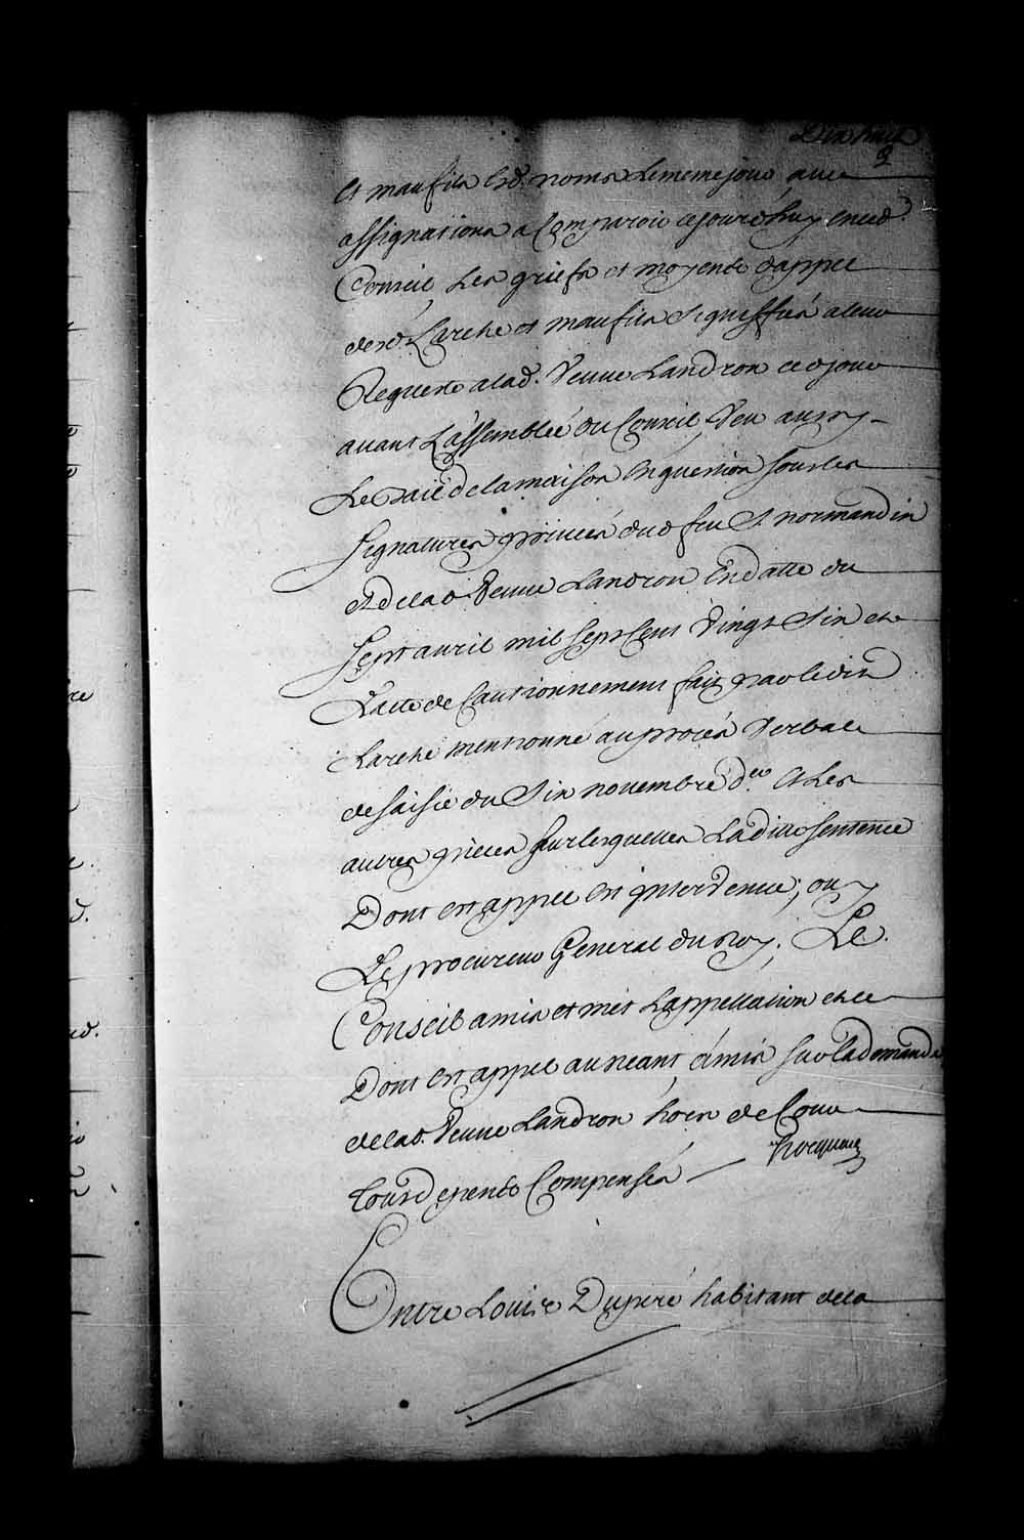 Dix huit
et maufils esd. noms le meme jour avec
assignations a Comparoir cejourd'huy end.
Conseil Les griefs et moyens d'appel
desd. Larche et maufils signiffiés a leur
Requeste a lad. Veuve Landron ced. jour
avant L'assemblée du Conseil, Veu aussy
Le bail de la maison En question sous les
signatures privées dud feu Sr. normandin
et de lad. Veuve Landron En datte du
sept avril mil sept Cens Vingt Six et
L'acte de Cautionnement fait par ledit
Larche mentionné au procés Verbal
de saisie du Six novembre der. et Les
autres pieces sur lesquelles Ladite sentence
Dont est appel est intervenue, ouy
Le procureur General du Roy. Le
Conseil a mis et met L'appellation et ce
Dont est appel au neant, émis sur la demande
de lad. Veuve Landron hors de Cour
tous depends Compensés
hocquart
Entre Louis Dupéré habitant de la